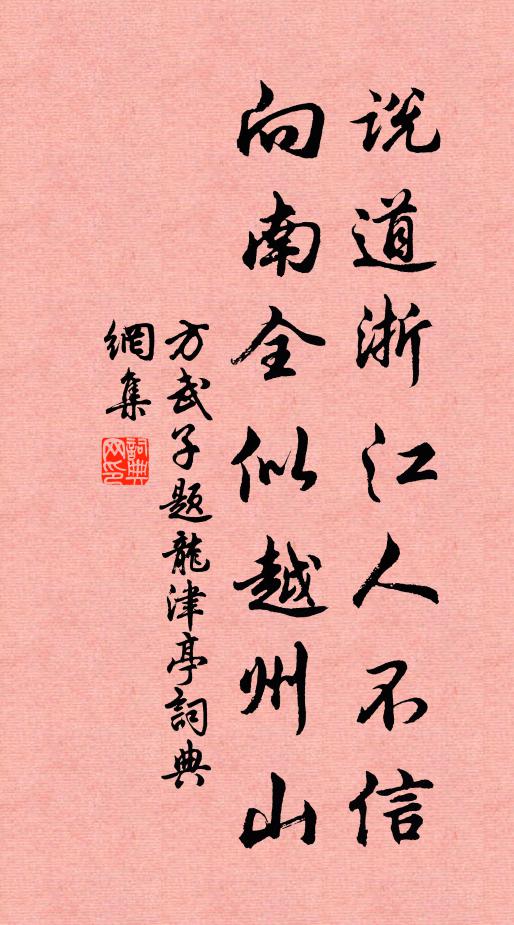 説道浙江人不信
向南全似越州山
方武子题龍津亭詞典
網集
詞典網印